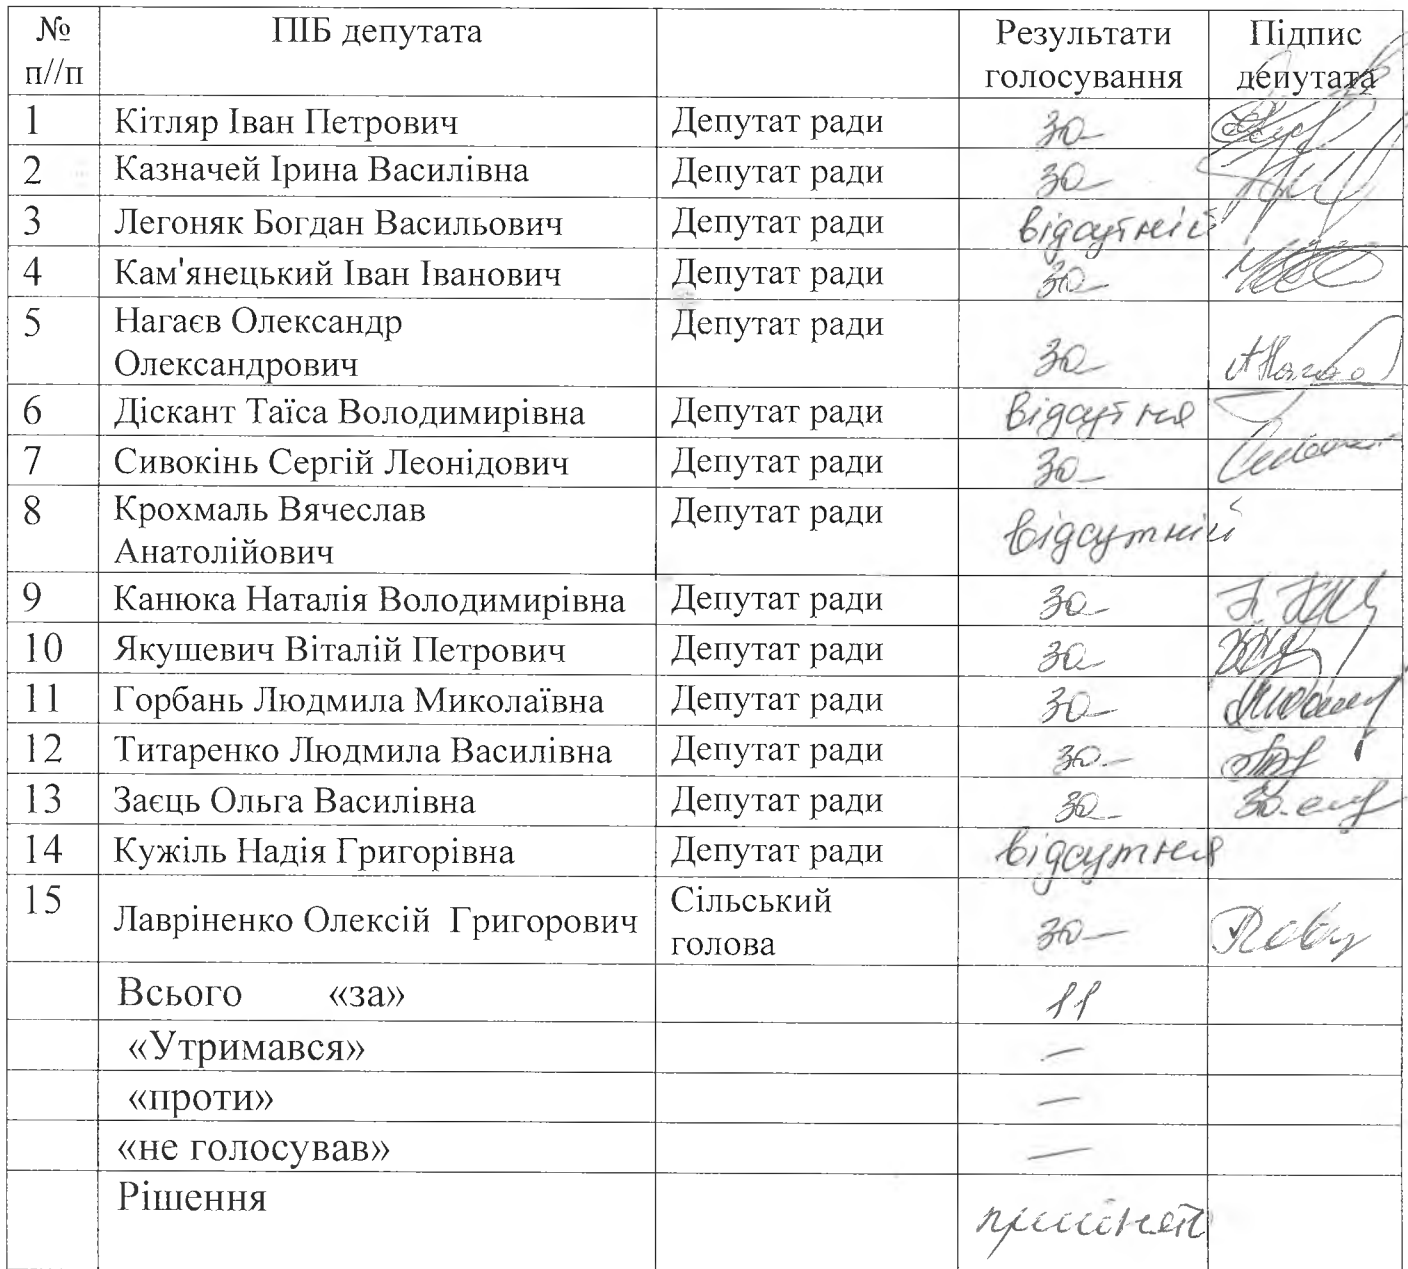 № ПІБ депутата Результати Підпис
п//п голосування депутата
1 Кітляр Іван Петрович Депутат ради за
2 Казначей Ірина Василівна Депутат ради за
3 Легоняк Богдан Васильович Депутат ради відсутній
4 Кам'янецький Іван Іванович Депутат ради за
5 Нагаєв Олександр Депутат ради
Олександрович за
6 Діскант Таїса Володимирівна Депутат ради відсутня
7 Сивокінь Сергій Леонідович Депутат ради за
8 Крохмаль Вячеслав Депутат ради відсутній
Анатолійович
9 Канюка Наталія Володимирівна Депутат ради за
10 Якушевич Віталій Петрович Депутат ради за
11 Горбань Людмила Миколаївна Депутат ради за
12 Титаренко Людмила Василівна Депутат ради за
13 Заєць Ольга Василівна Депутат ради за
14 Кужіль Надія Григорівна Депутат ради відсутня
15 Лавріненко Олексій Григорович Сільський за
голова
Всього «за» 11
«Утримався» —
«проти» —
«не голосував» —
Рішення